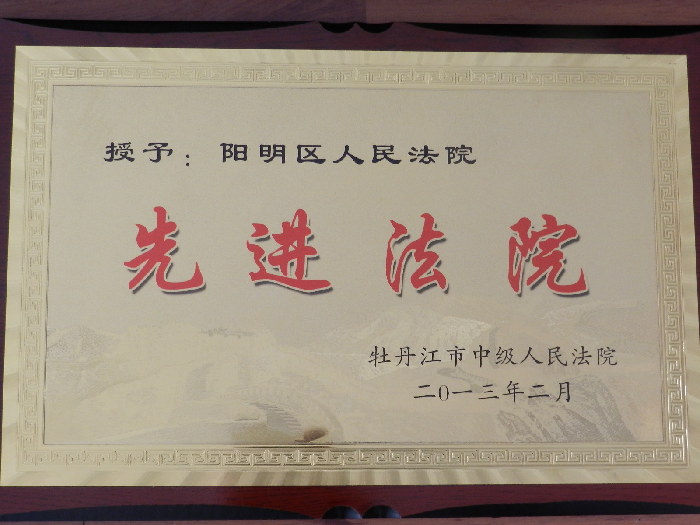 授予：阳明区人民法院
先进法院
牡丹江市中级人民法院
二0一三年二月